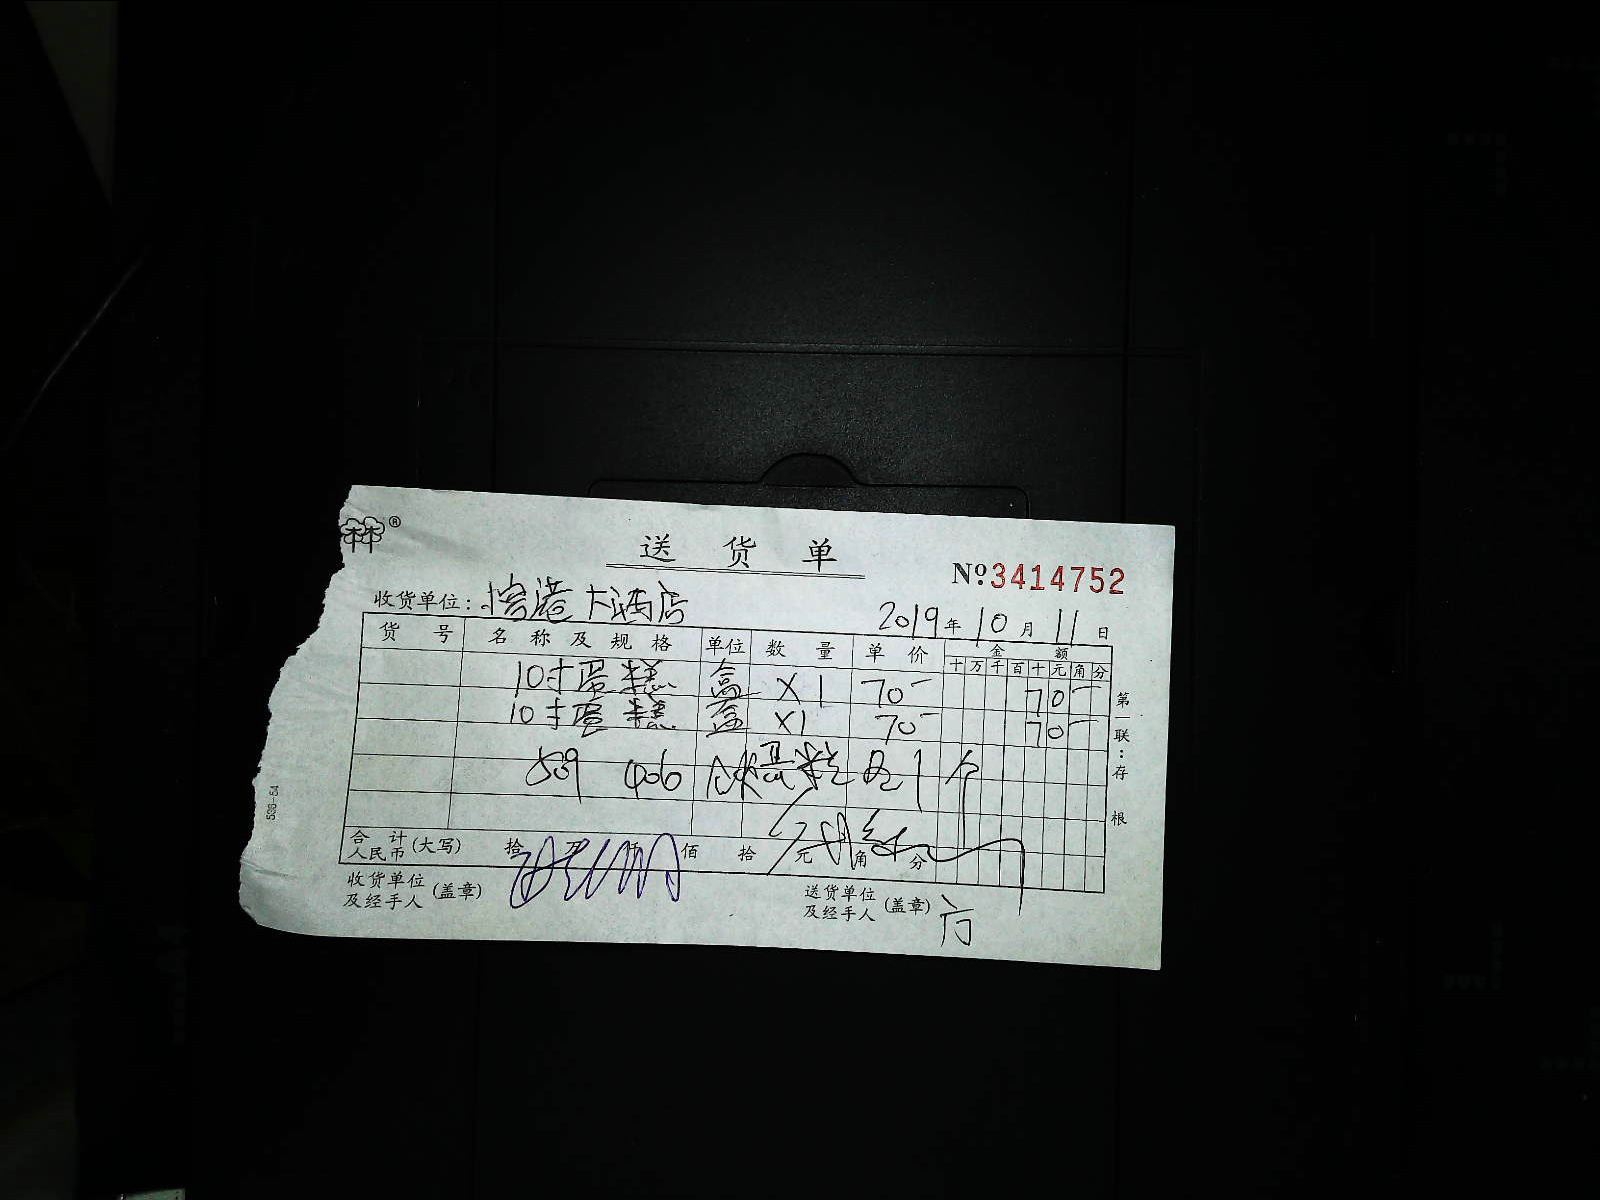 林®
送货单
№3414752
收货单位: 港大酒店
2019年10月11日
货号 名称及规格 单位 数量 单价 金额
十万千百十元角分
10寸蛋糕 盒 X1 70- 70-
10寸蛋糕 盒 X1 70- 70-
539 406 蛋糕 各1个
合计人民币(大写) 拾 万 仟 佰 拾 元 角 分
收货单位及经手人(盖章)
送货单位及经手人(盖章) 方
第一联:存根
536-54